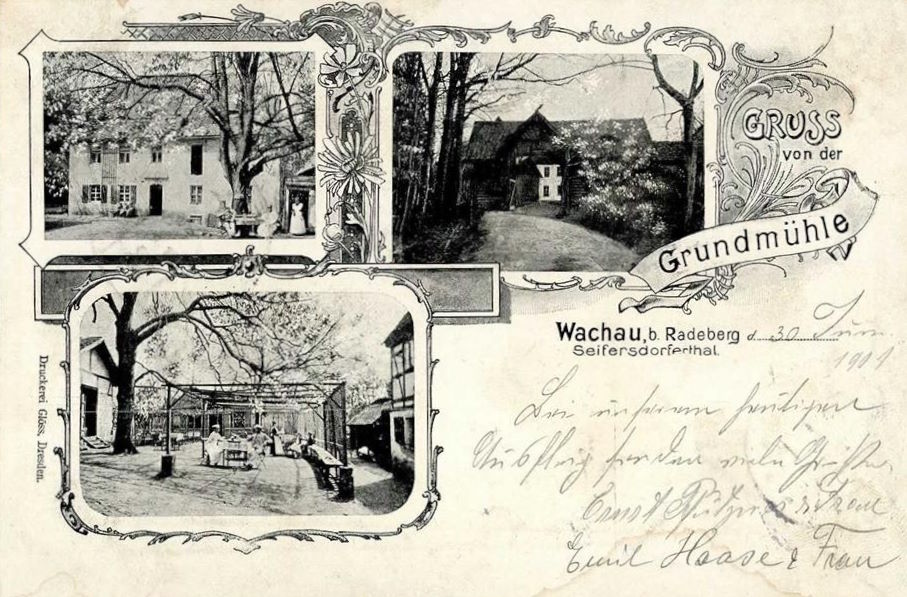 GRUSS
von der
Grundmühle
Wachau, b. Radeberg d. 30 Juni
Seifersdorferthal.
1901
Bei unserem heutigen
Ausflug senden viele Grüße
Ernst & Frau
Emil Haase & Frau
Druckerei Glöss, Dresden.